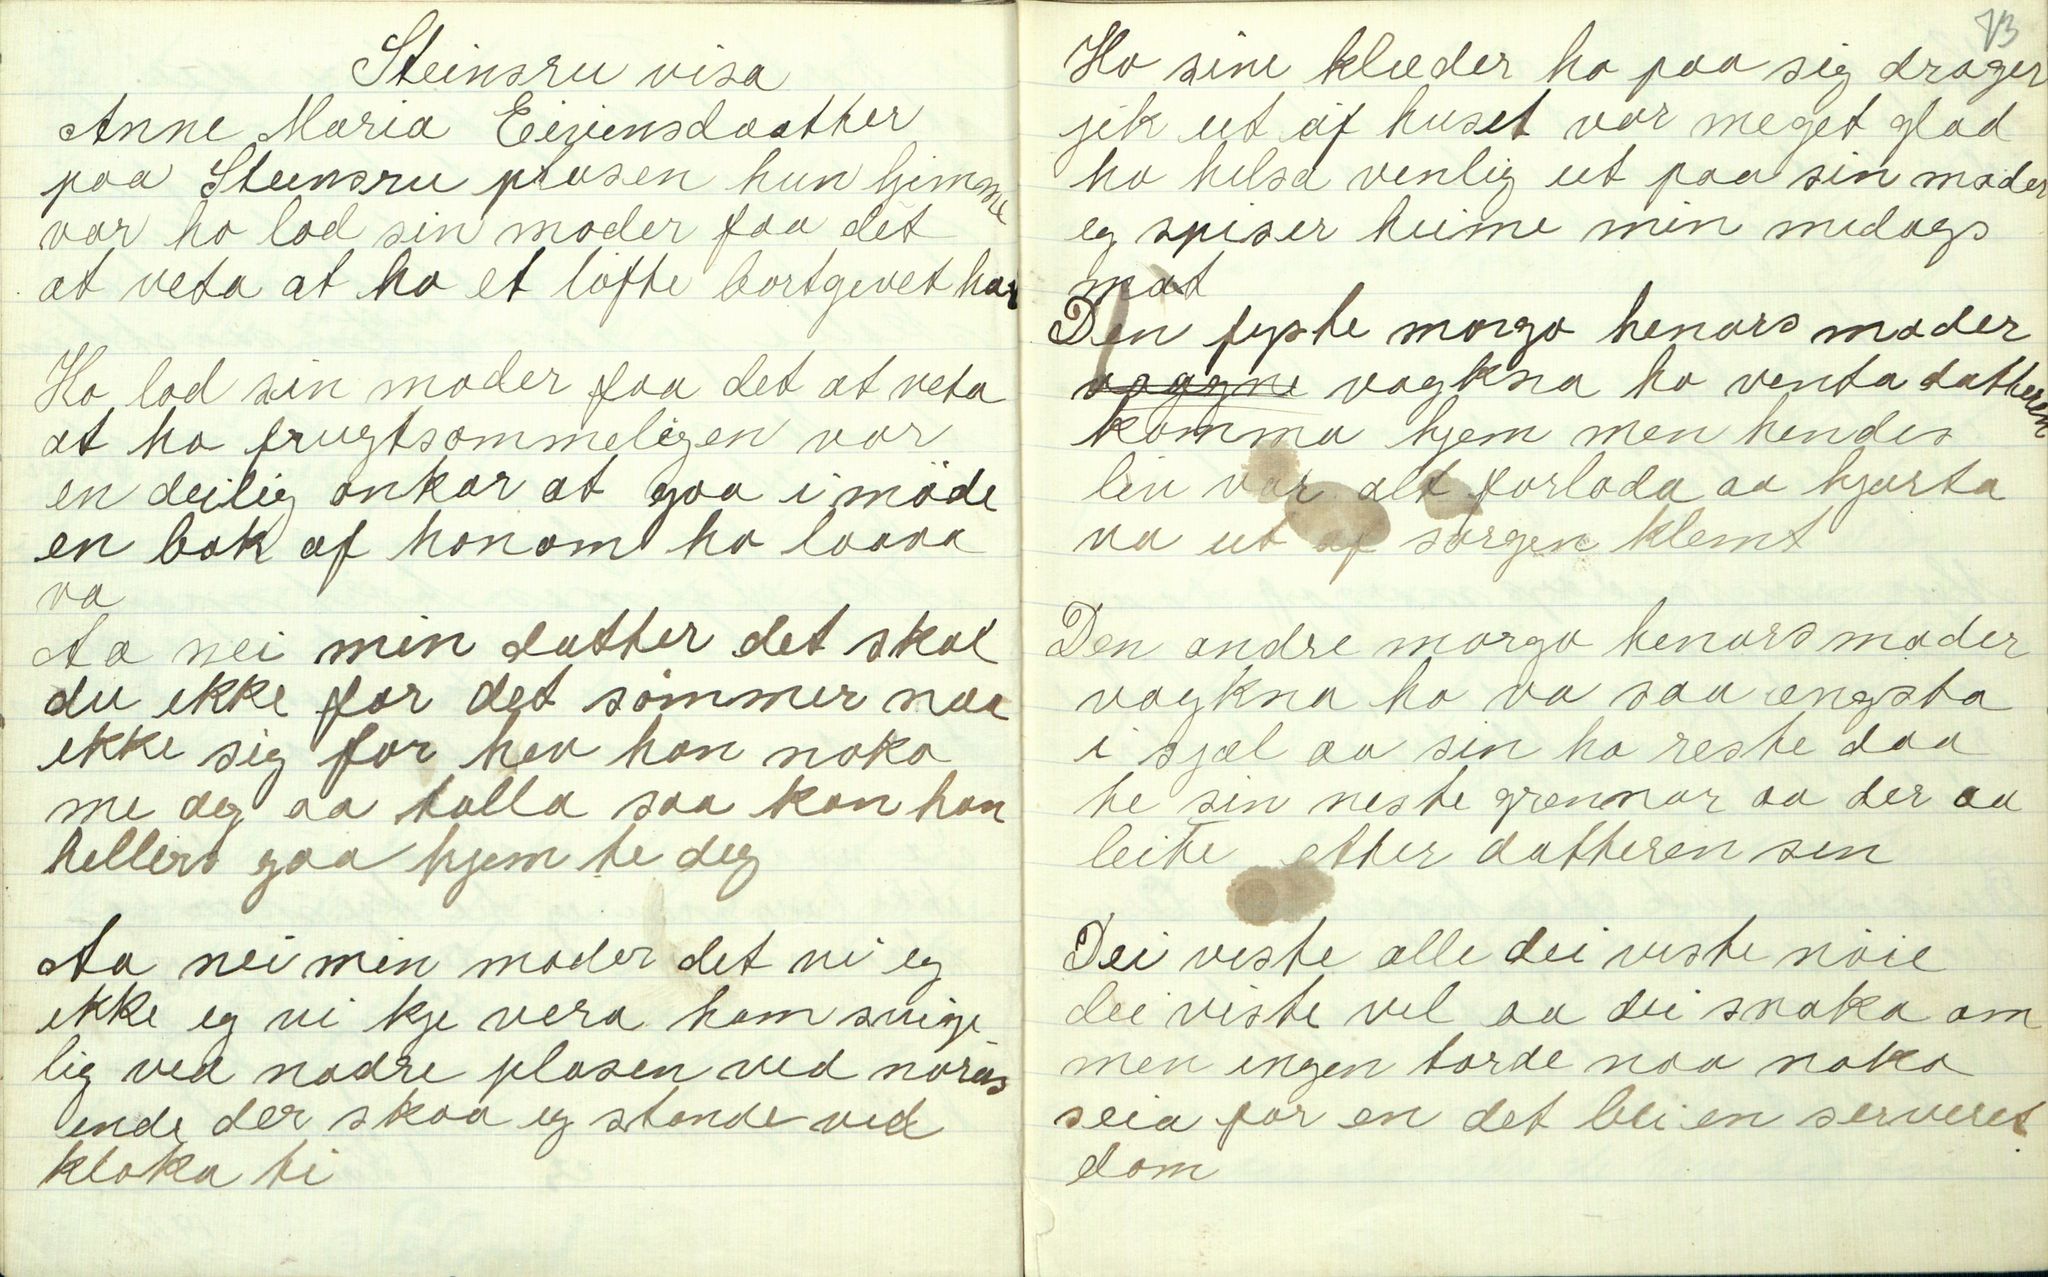 Steinsru visa
Anne Maria Eivinsdaather
paa Steinsru plasen hun hjemme
var ho lod sin moder faa det
at veta at ho et löfte bortgevet har
Ho lod sin moder faa det at veta
at ho frugtsommeligen var
en deilig ankar at gaa i möde
en bok af honom ho laava
va
Aa nei min datther det skal
du ikke for det sömmer naa
ikke sig for hev han noko
me deg aa talla saa kan han
hellers gaa hjem te deg
Aa nei min moder det vi eg
ikke eg vi kje vera ham svige
lig ved nadre plasen ved nöras
ende der skaa eg stande ved
kloka ti
73
Ho sine klæder ho paa sig drager
jik ut af huset var meget glad
ho helsa venlig ut paa sin moder
eg spiser heime min medags
mat
Den fyste morgo henars moder
vagkna ho venta datheren
komma hjem men hendes
liv var alt forlada aa hjarta
va ut af sorgen klemt
Den andre morgo henars moder
vagkna ho va saa ængsta
i sjæl aa sin ho reste daa
te sin neste grennar aa der aa
leite etter datheren sen
Dei veste alle dei veste nöie
dei viste vel aa dei snaka om
men engen torde naa noko
seia for en det blei en serveret
dom